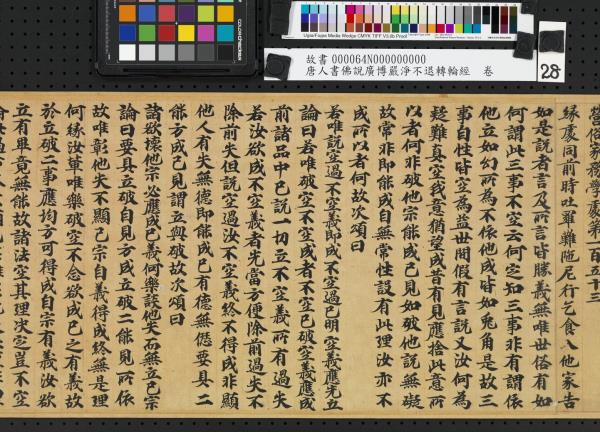 UgraFugra Media Wedge CMYK TIFF V3.0b Proof
故書 000064N000000000
唐人書佛說廣博嚴淨不退轉輪經 卷
28
營俗家務學處第一百五十三
緣處同前時吐羅難陀尼行乞食入他家告
如是說者言及所言皆勝義無唯世俗有如
何謂此三事不空云何定知三事非有謂依
他立如幻所為不依他成皆如兔角是故三
事自性皆空為益世間假有言說又汝何為
疑難真空我意猶望成昔有見應捨此意所
以者何非破他宗能成己見如破他說無礙
故常非即能成自無常性設有此理汝亦不
成所以者何故次頌曰
若唯說空過不空義即成不空過已明空義應先立
論曰若唯破空不空成者不空已破空義應成
前諸品中已說一切立不空義所有過失
若汝欲成不空義者先當方便除前過失不
除前失但說空過汝不空義終不得成非顯
他人有失無德即能成己有德無愆要具二
能方成己見謂立與破故次頌曰
諸欲壞他宗必應成己義何樂談他失而無立己宗
論曰要具立破自見方成立破二能見所依
故唯彰他失不顯己宗自義得成終無是理
何緣汝輩唯樂破空不念欲成己之有義故
於立破二事應均方可得成自宗有義汝欲
立有畢竟無能故諸法空其理決定豈不空